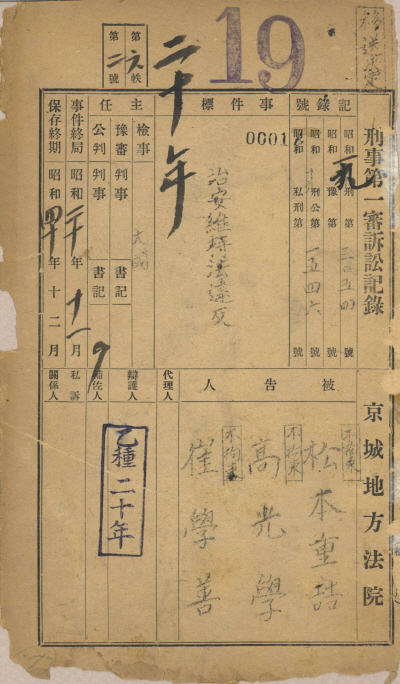 19
二十年
刑事第一審訴訟記錄
京城地方法院
記錄號
昭和一九 刑 第三五四 號
昭和 豫 第 號
昭和 刑公第一五四六 號
昭和 私刑第 號
0001
事件標
治安維持法違反
主任
檢事
豫審判事 書記
公判判事 書記
事件終局 昭和二十年十一月
保存終期 昭和四〇年十二月
被告人
松本重喆
不拘束
高光學
不拘束
崔學善
不拘束
代理人
辯護人
補佐人
私訴
關係人
乙種二十年